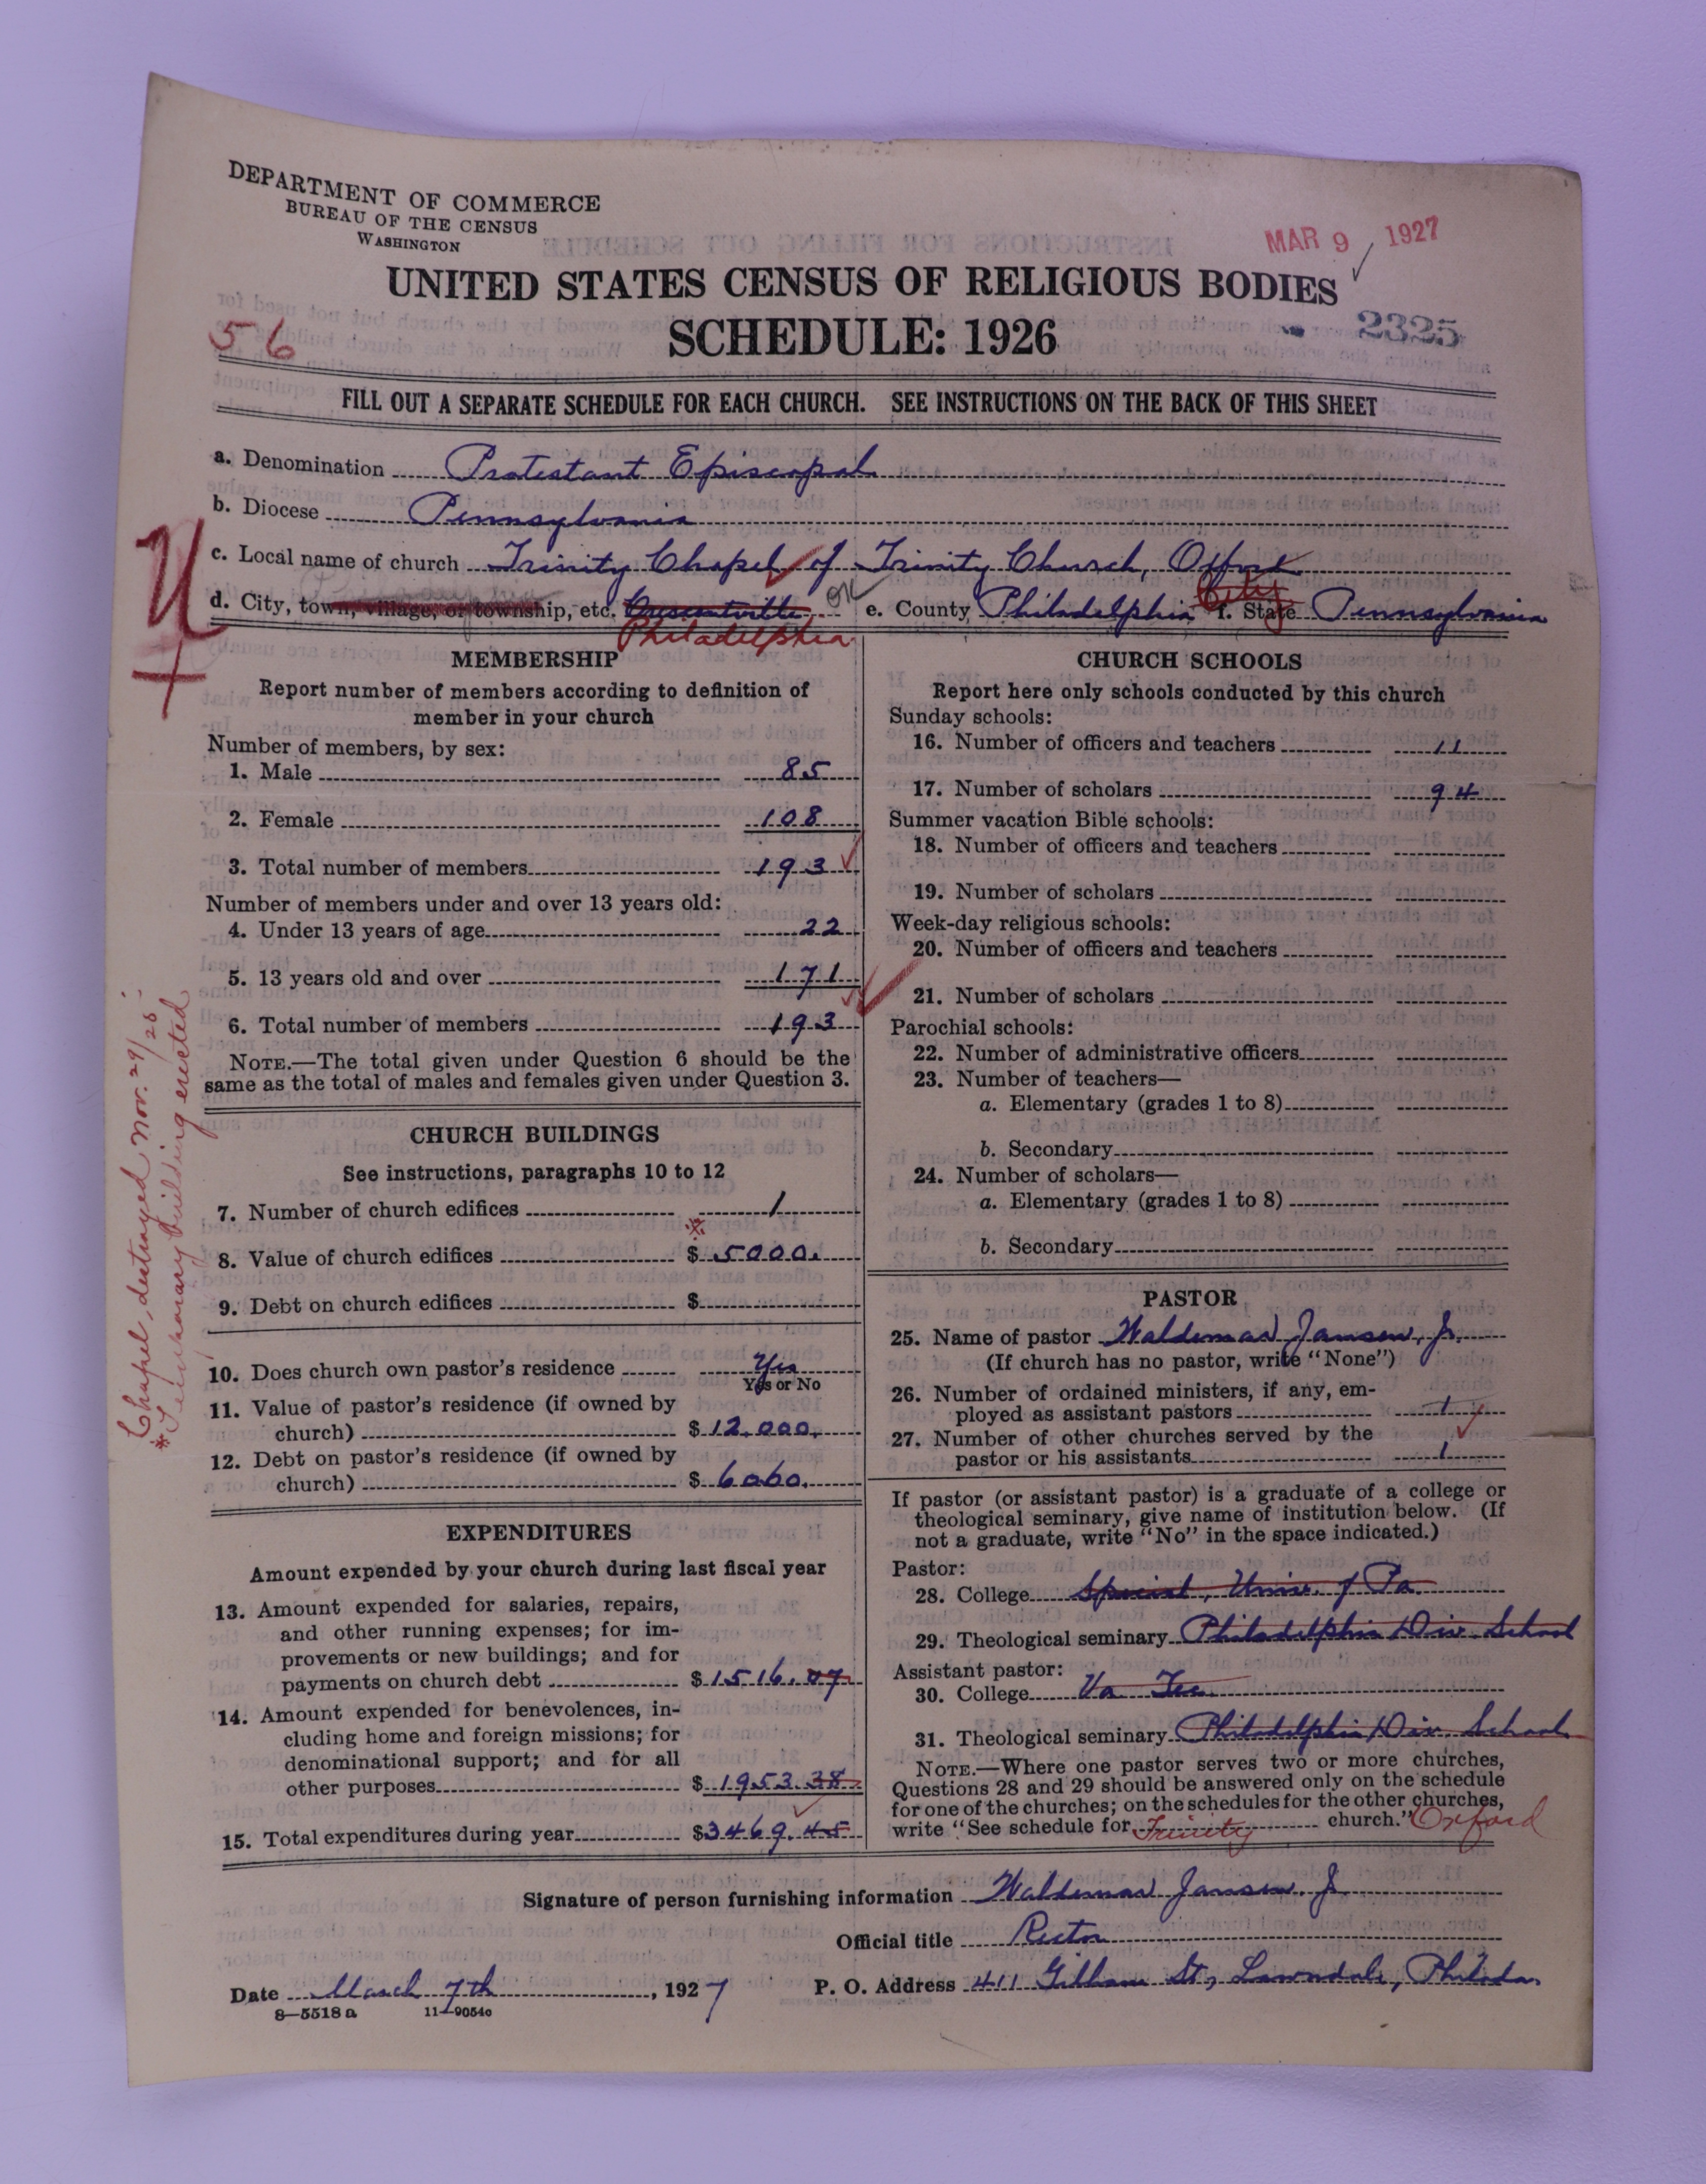 DEPARTMENT OF COMMERCE
BUREAU OF THE CENSUS
WASHINGTON
MAR 9 1927
UNITED STATES CENSUS OF RELIGIOUS BODIES
SCHEDULE: 1926
2325
56
FILL OUT A SEPARATE SCHEDULE FOR EACH CHURCH. SEE INSTRUCTIONS ON THE BACK OF THIS SHEET
a. Denomination Protestant Episcopal
b. Diocese Pennsylvania
c. Local name of church Trinity Chapel of Trinity Church, Oxford
d. City, town, village, or township, etc. Crescentville OK e. County Philadelphia City f. State Pennsylvania
Philadelphia
MEMBERSHIP
Report number of members according to definition of
member in your church
Number of members, by sex:
1. Male 85
2. Female 108
3. Total number of members 193
Number of members under and over 13 years old:
4. Under 13 years of age 22
5. 13 years old and over 171
6. Total number of members 193
NOTE.—The total given under Question 6 should be the
same as the total of males and females given under Question 3.
CHURCH BUILDINGS
See instructions, paragraphs 10 to 12
7. Number of church edifices 1
8. Value of church edifices $ *5000.
9. Debt on church edifices $
10. Does church own pastor's residence Yes
Yes or No
11. Value of pastor's residence (if owned by
church) $ 12,000.
12. Debt on pastor's residence (if owned by
church) $ 6000.
EXPENDITURES
Amount expended by your church during last fiscal year
13. Amount expended for salaries, repairs,
and other running expenses; for im-
provements or new buildings; and for
payments on church debt $ 1516.07
14. Amount expended for benevolences, in-
cluding home and foreign missions; for
denominational support; and for all
other purposes $ 1953.38
15. Total expenditures during year $3469.45
Chapel destroyed Nov. 29/25
*Temporary building erected
CHURCH SCHOOLS
Report here only schools conducted by this church
Sunday schools:
16. Number of officers and teachers 11
17. Number of scholars 94
Summer vacation Bible schools:
18. Number of officers and teachers
19. Number of scholars
Week-day religious schools:
20. Number of officers and teachers
21. Number of scholars
Parochial schools:
22. Number of administrative officers
23. Number of teachers—
a. Elementary (grades 1 to 8)
b. Secondary
24. Number of scholars—
a. Elementary (grades 1 to 8)
b. Secondary
PASTOR
25. Name of pastor Waldemar Jansen, Jr.
(If church has no pastor, write "None")
26. Number of ordained ministers, if any, em-
ployed as assistant pastors 1
27. Number of other churches served by the
pastor or his assistants 1
If pastor (or assistant pastor) is a graduate of a college or
theological seminary, give name of institution below. (If
not a graduate, write "No" in the space indicated.)
Pastor:
28. College Special, Univ. of Pa.
29. Theological seminary Philadelphia Div. School
Assistant pastor:
30. College Va
31. Theological seminary Philadelphia Div. School
NOTE.—Where one pastor serves two or more churches,
Questions 28 and 29 should be answered only on the schedule
for one of the churches; on the schedules for the other churches,
write "See schedule for Trinity church." Oxford
Signature of person furnishing information Waldemar Jansen Jr
Official title Rector
Date March 7th, 1927 P. O. Address 411 Gilham St., Lawndale, Philada
8—5518 a 11—9054c